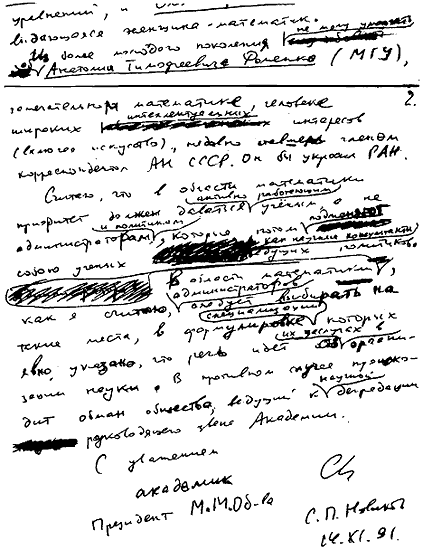 уравнений, и
выдающаяся женщина-математик.
Из более молодого поколения не могу умолчать
Анатолия Тимофеевича Фоменко (МГУ),
2.
замечательный математик, человек
широких интеллектуальных интересов
(включая искусство), недавно членом
корреспондентом АН СССР. Он бы украсил РАН.
Считаю, что в области математики
приоритет должен даваться активно работающим учёным, а не
администраторам и политикам, которые потом подменяют
собою ученых как научные консультанты ведущих политиков.
В области математики,
как я считаю, администраторов следует выбирать на
такие места, в формулировке которых специально
явно указано, что речь идет об их заслугах в органи-
зации науки. В противном случае происхо-
дит обман общества, ведущий к научной деградации
руководящего звена Академии.
С уважением
академик
Президент М.М.Об-ва
С. П. Новиков
14.XI.91.